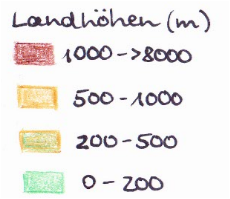 Landhöhen (m)
1000->8000
500-1000
200-500
0-200